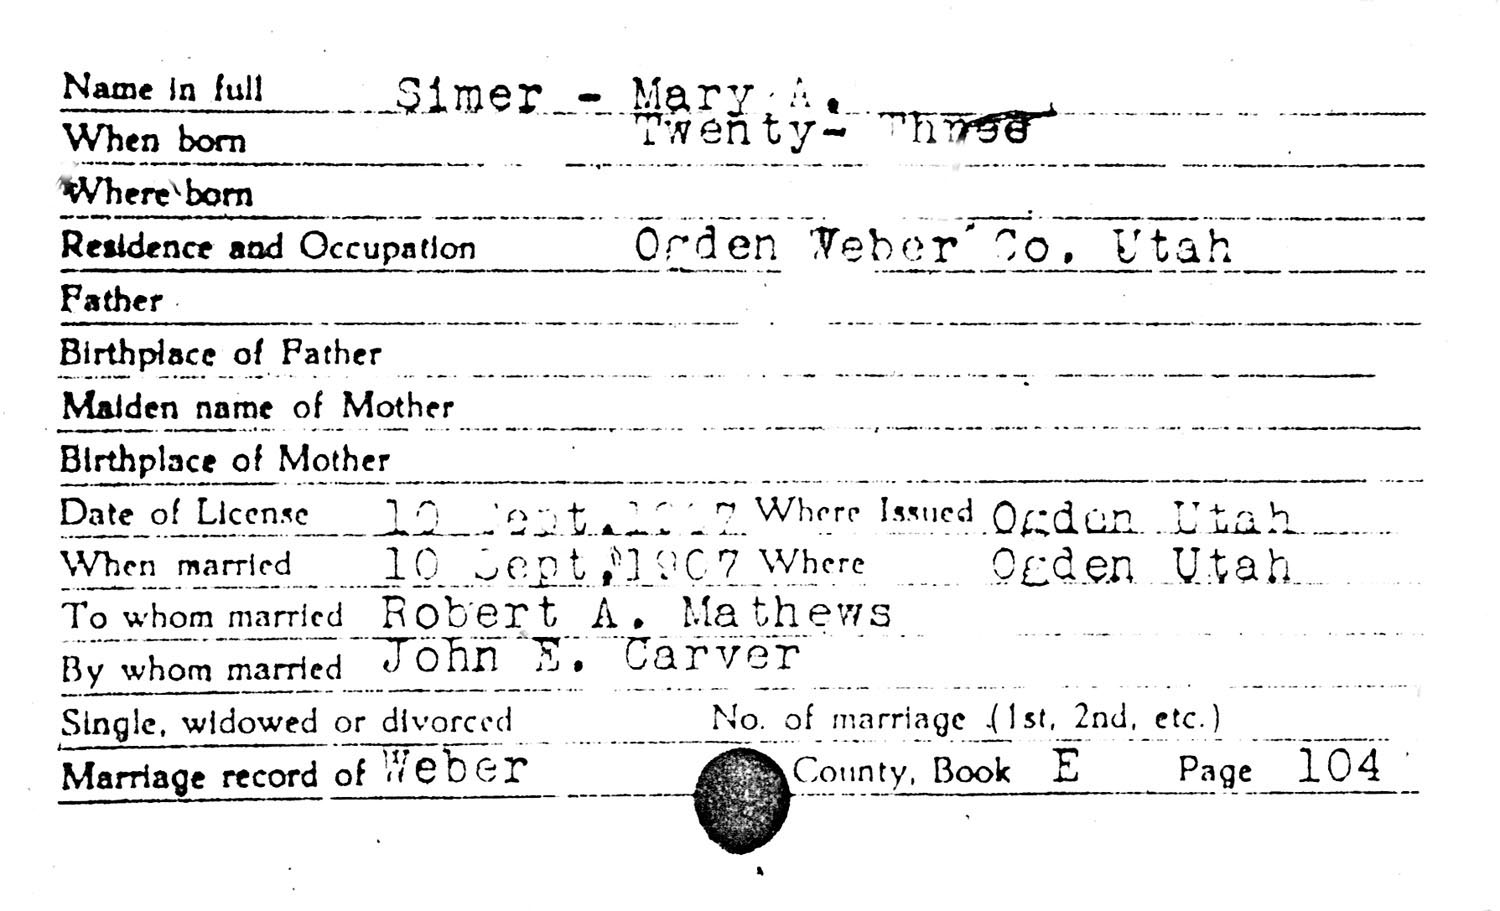 Name in full Simer - Mary A.
When born Twenty- Three
Where born
Residence and Occupation Ogden Weber Co. Utah
Father
Birthplace of Father
Maiden name of Mother
Birthplace of Mother
Date of License 10 Sept. 1907 Where Issued Ogden Utah
When married 10 Sept. 1907 Where Ogden Utah
To whom married Robert A. Mathews
By whom married John E. Carver
Single, widowed or divorced No. of marriage (1st, 2nd, etc.)
Marriage record of Weber County, Book E Page 104